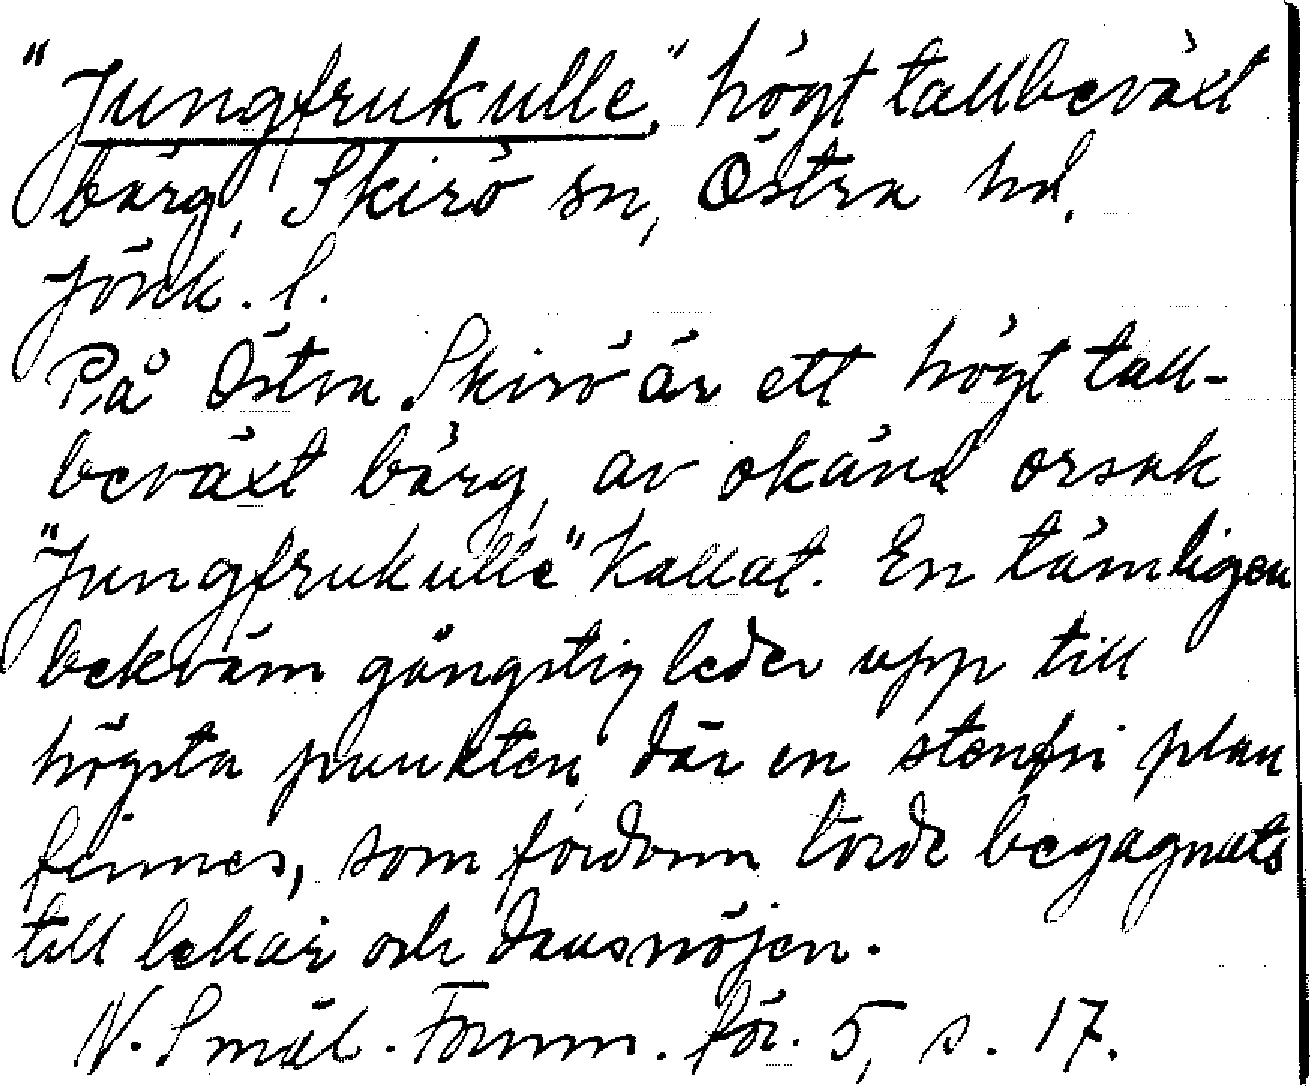 "Jungfrukulle," högt tallbeväxt
bärg, Skirö sn, Östra hd.
Jönk. l.
På Östra Skirö är ett högt tall-
beväxt bärg, av okänd orsak
"Jungfrukulle" kallat. En tämligen
bekväm gångstig leder upp till
högsta punkten, där en stenfri plan
finnes, som fordom torde begagnats
till lekar och dansnöjen.
N. Smål. Fornm. för. 5, s. 17.